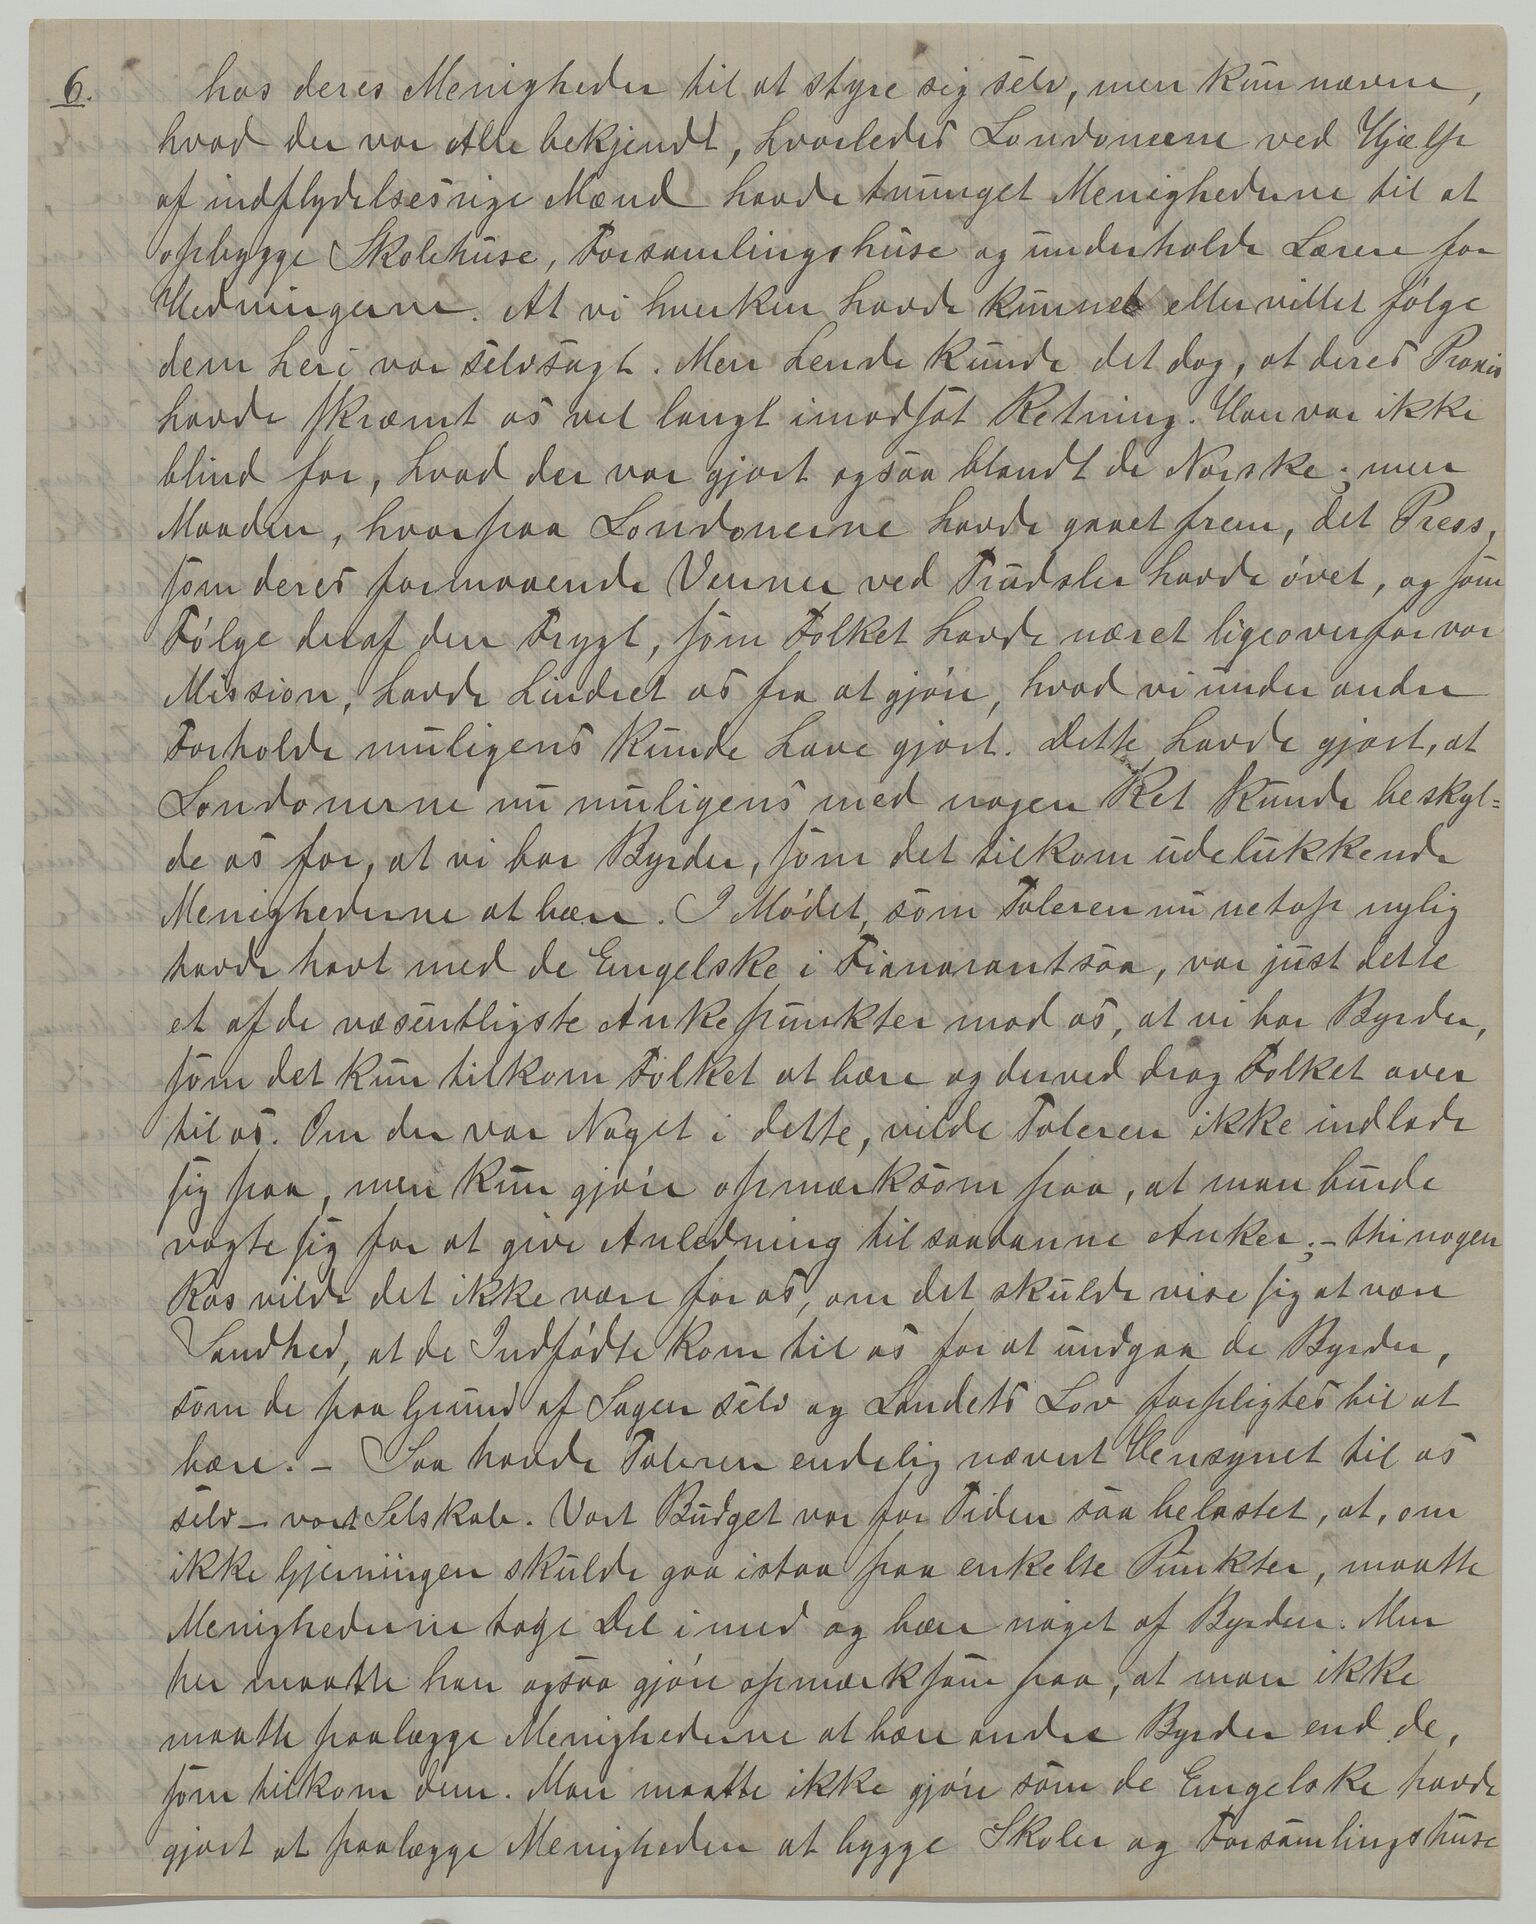 6.
hos deres Menigheder til at styre sig selv, men kun nævne,
hvad der var Alle bekjendt, hvorledes Londonerne ved Hjælp
af indflydelsesrige Mænd havde tvunget Menighederne til at
opbygge Skolehuse, Forsamlingshuse og underholde Lærere for
Hedningerne. At vi hverken havde kunnet eller villet følge
dem heri var selvsagt. Men hende kunde det dog, at deres Praxis
havde skræmt os vel langt i modsat Retning. Han var ikke
blind for, hvad der var gjort ogsaa blandt de Norske; men
Maaden, hvorpaa Londonerne havde gaaet frem, det Press,
som deres formaaende Venner ved Trudsler havde øvet, og som
Følge deraf den Frygt, som Folket havde næret ligeoverfor vor
Mission, havde hindret os fra at gjøre, hvad vi under andre
Forholde muligens kunde have gjort. Dette havde gjort, at
Londonerne nu muligens med nogen Ret kunde beskyl=
de os for, at vi bar Byrder, som det tilkom udelukkende
Menighederne at bære. I Mødet, som Taleren nu netop nylig
havde havt med de Engelske i Fianarantsoa, var just dette
et af de væsentligste Ankepunkter mod os, at vi bar Byrder,
som det kun tilkom Folket at bære og derved drog Folket over
til os. Om der var Noget i dette, vilde Taleren ikke indlade
sig paa, men kun gjøre opmærksom paa, at man burde
vogte sig for at give Anledning til saadanne Anker; – thi nogen
Ros vilde det ikke være for os, om det skulde vise sig at være
Sandhed, at de Indfødte kom til os for at undgaa de Byrder,
som de paa Grund af Sagen selv og Landets Lov forpligtes til at
bære. – Saa havde Taleren endelig nævnt Hensynet til os
selv – vort Selskab. Vort Budget var for Tiden saa belastet, at, om
ikke Gjerningen skulde gaa istaa paa enkelte Punkter, maatte
Menighederne tage Del i med og bære noget af Byrden. Men
her maatte han ogsaa gjøre opmærksom paa, at man ikke
maatte paalægge Menighederne at bære andre Byrder end de,
som tilkom dem. Man maatte ikke gjøre som de Engelske havde
gjort at paalægge Menigheden at bygge Skoler og Forsamlingshuse